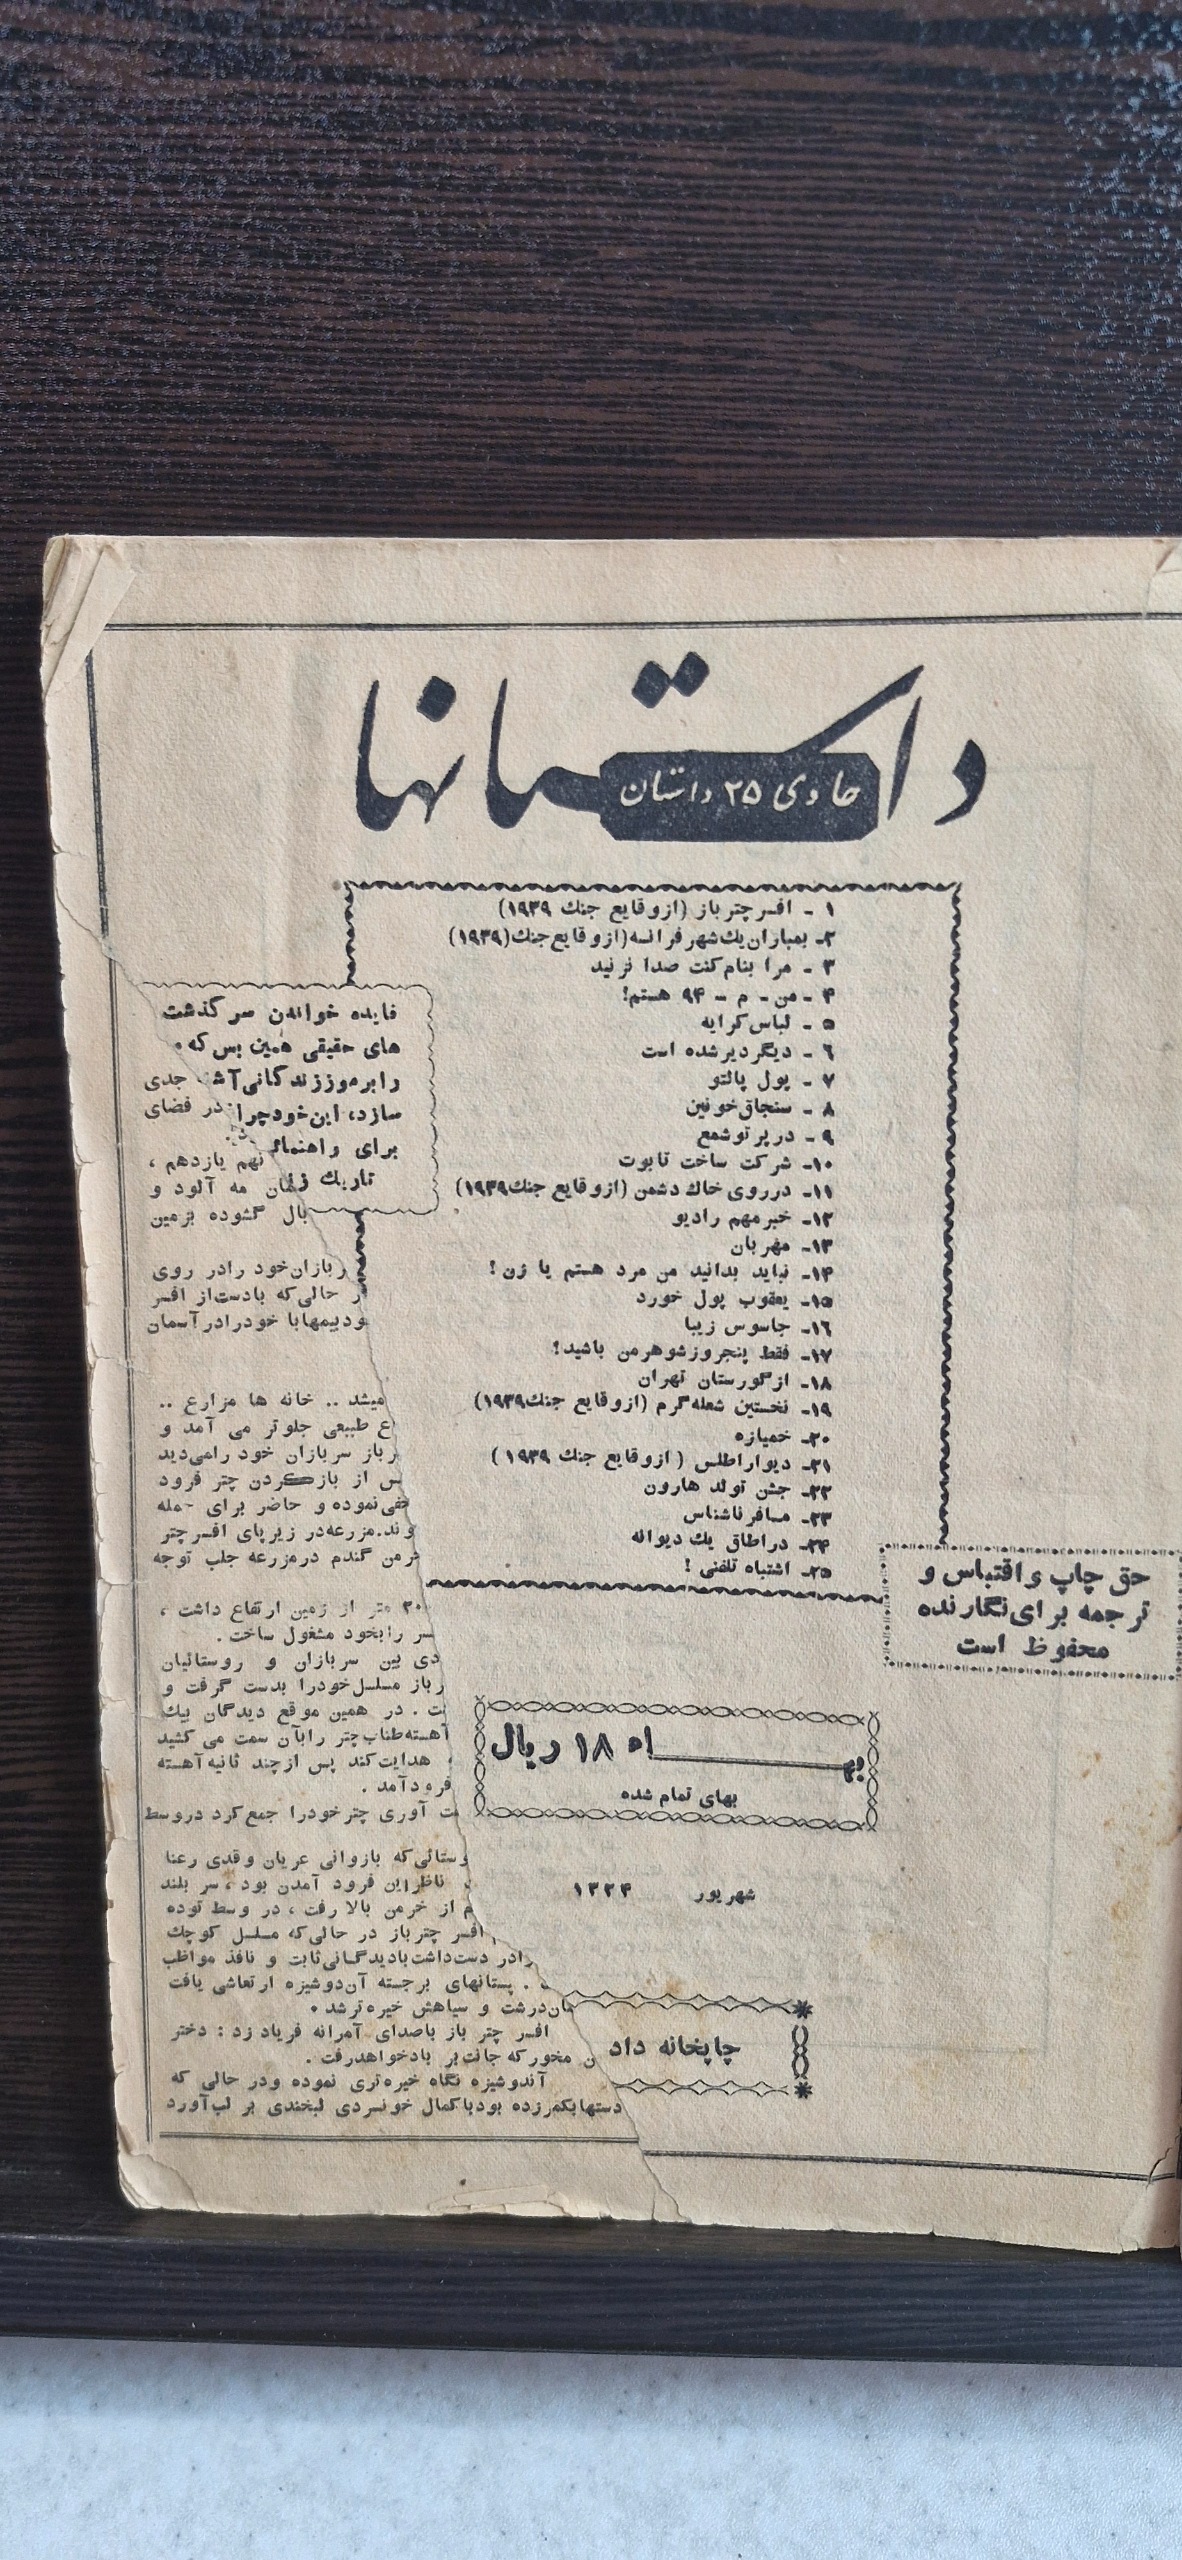 داستانها
حاوی ۲۵ داستان
۱ - افسر چتر باز (از وقایع جنك ۱۹۳۹)
۲- بمباران یك شهر فرانسه (از وقایع جنك (۱۹۳۹)
۳ - مرا بنام کنت صدا نزنید
۴ - من - م - ۹۴ هستم!
۵ - لباس کرایه
۶ - دیگر دیر شده است
۷ - پول پالتو
۸ - سنجاق خونین
۹ - در پر تو شمع
۱۰- شرکت ساخت تابوت
۱۱- در روی خاك دشمن (از وقایع جنك ۱۹۳۹)
۱۲- خبر مهم رادیو
۱۳- مهربان
۱۴- نباید بدانید من مرد هستم یا زن !
۱۵- یعقوب پول خورد
۱۶- جاسوس زیبا
۱۷- فقط پنجروز شوهر من باشید!
۱۸- از گورستان تهران
۱۹- نخستین شعله گرم (از وقایع جنك ۱۹۳۹)
۲۰- خمیازه
۲۱- دیوار اطلس ( از وقایع جنك ۱۹۳۹ )
۲۲- جشن تولد هارون
۲۳- مسافر ناشناس
۲۴- در اطاق یك دیوانه
۲۵- اشتباه تلفنی !
حق چاپ و اقتباس و
ترجمه برای نگارنده
محفوظ است
بهاء ۱۸ ریال
بهای تمام شده
شهریور ۱۳۲۴
چاپخانه داد
فایده خواندن سر گذشت
های حقیقی همین بس که
را برموز زندگانی آشنا
سازد، این خود چرا
برای راهنمائ
تاریك ز
جدی
در فضای
نهم یازدهم ،
مه آلود و
بال گشوده بزمین
ربازان خود را در روی
ر حالی که با دست از افسر
ود بیمها با خود را در آسمان
میشد .. خانه ها مزارع ..
ع طبیعی جلو تر می آمد و
رباز سربازان خود را می دید
س از باز کردن چتر فرود
خفی نموده و حاضر برای حمله
وند. مزرعه در زیر پای افسر چتر
خرمن گندم در مزرعه جلب توجه
۲۰ متر از زمین ارتفاع داشت ،
سر را بخود مشغول ساخت .
دی بین سربازان و روستائیان
رباز مسلسل خود را بدست گرفت و
ت . در همین موقع دیدگان بیك
آهسته طناب چتر را بآن سمت می کشید
، هدایت کند پس از چند ثانیه آهسته
فرود آمد .
ت آوری چتر خود را جمع کرد در وسط
وستائی که بازوانی عریان و قدی رعنا
ناظر این فرود آمدن بود ، سر بلند
م از خرمن بالا رفت ، در وسط توده
افسر چتر باز در حالی که مسلسل کوچك
را در دست داشت با دیدگانی ثابت و نافذ مواظب
. پستانهای برجسته آن دوشیزه ارتعاشی یافت
ان درشت و سیاهش خیره تر شد .
افسر چتر باز با صدای آمرانه فریاد زد : دختر
ن مخور که جانت بر باد خواهد رفت .
آندوشیزه نگاه خیره تری نموده و در حالی که
دستها بکمر زده بود با کمال خونسردی لبخندی بر لب آورد